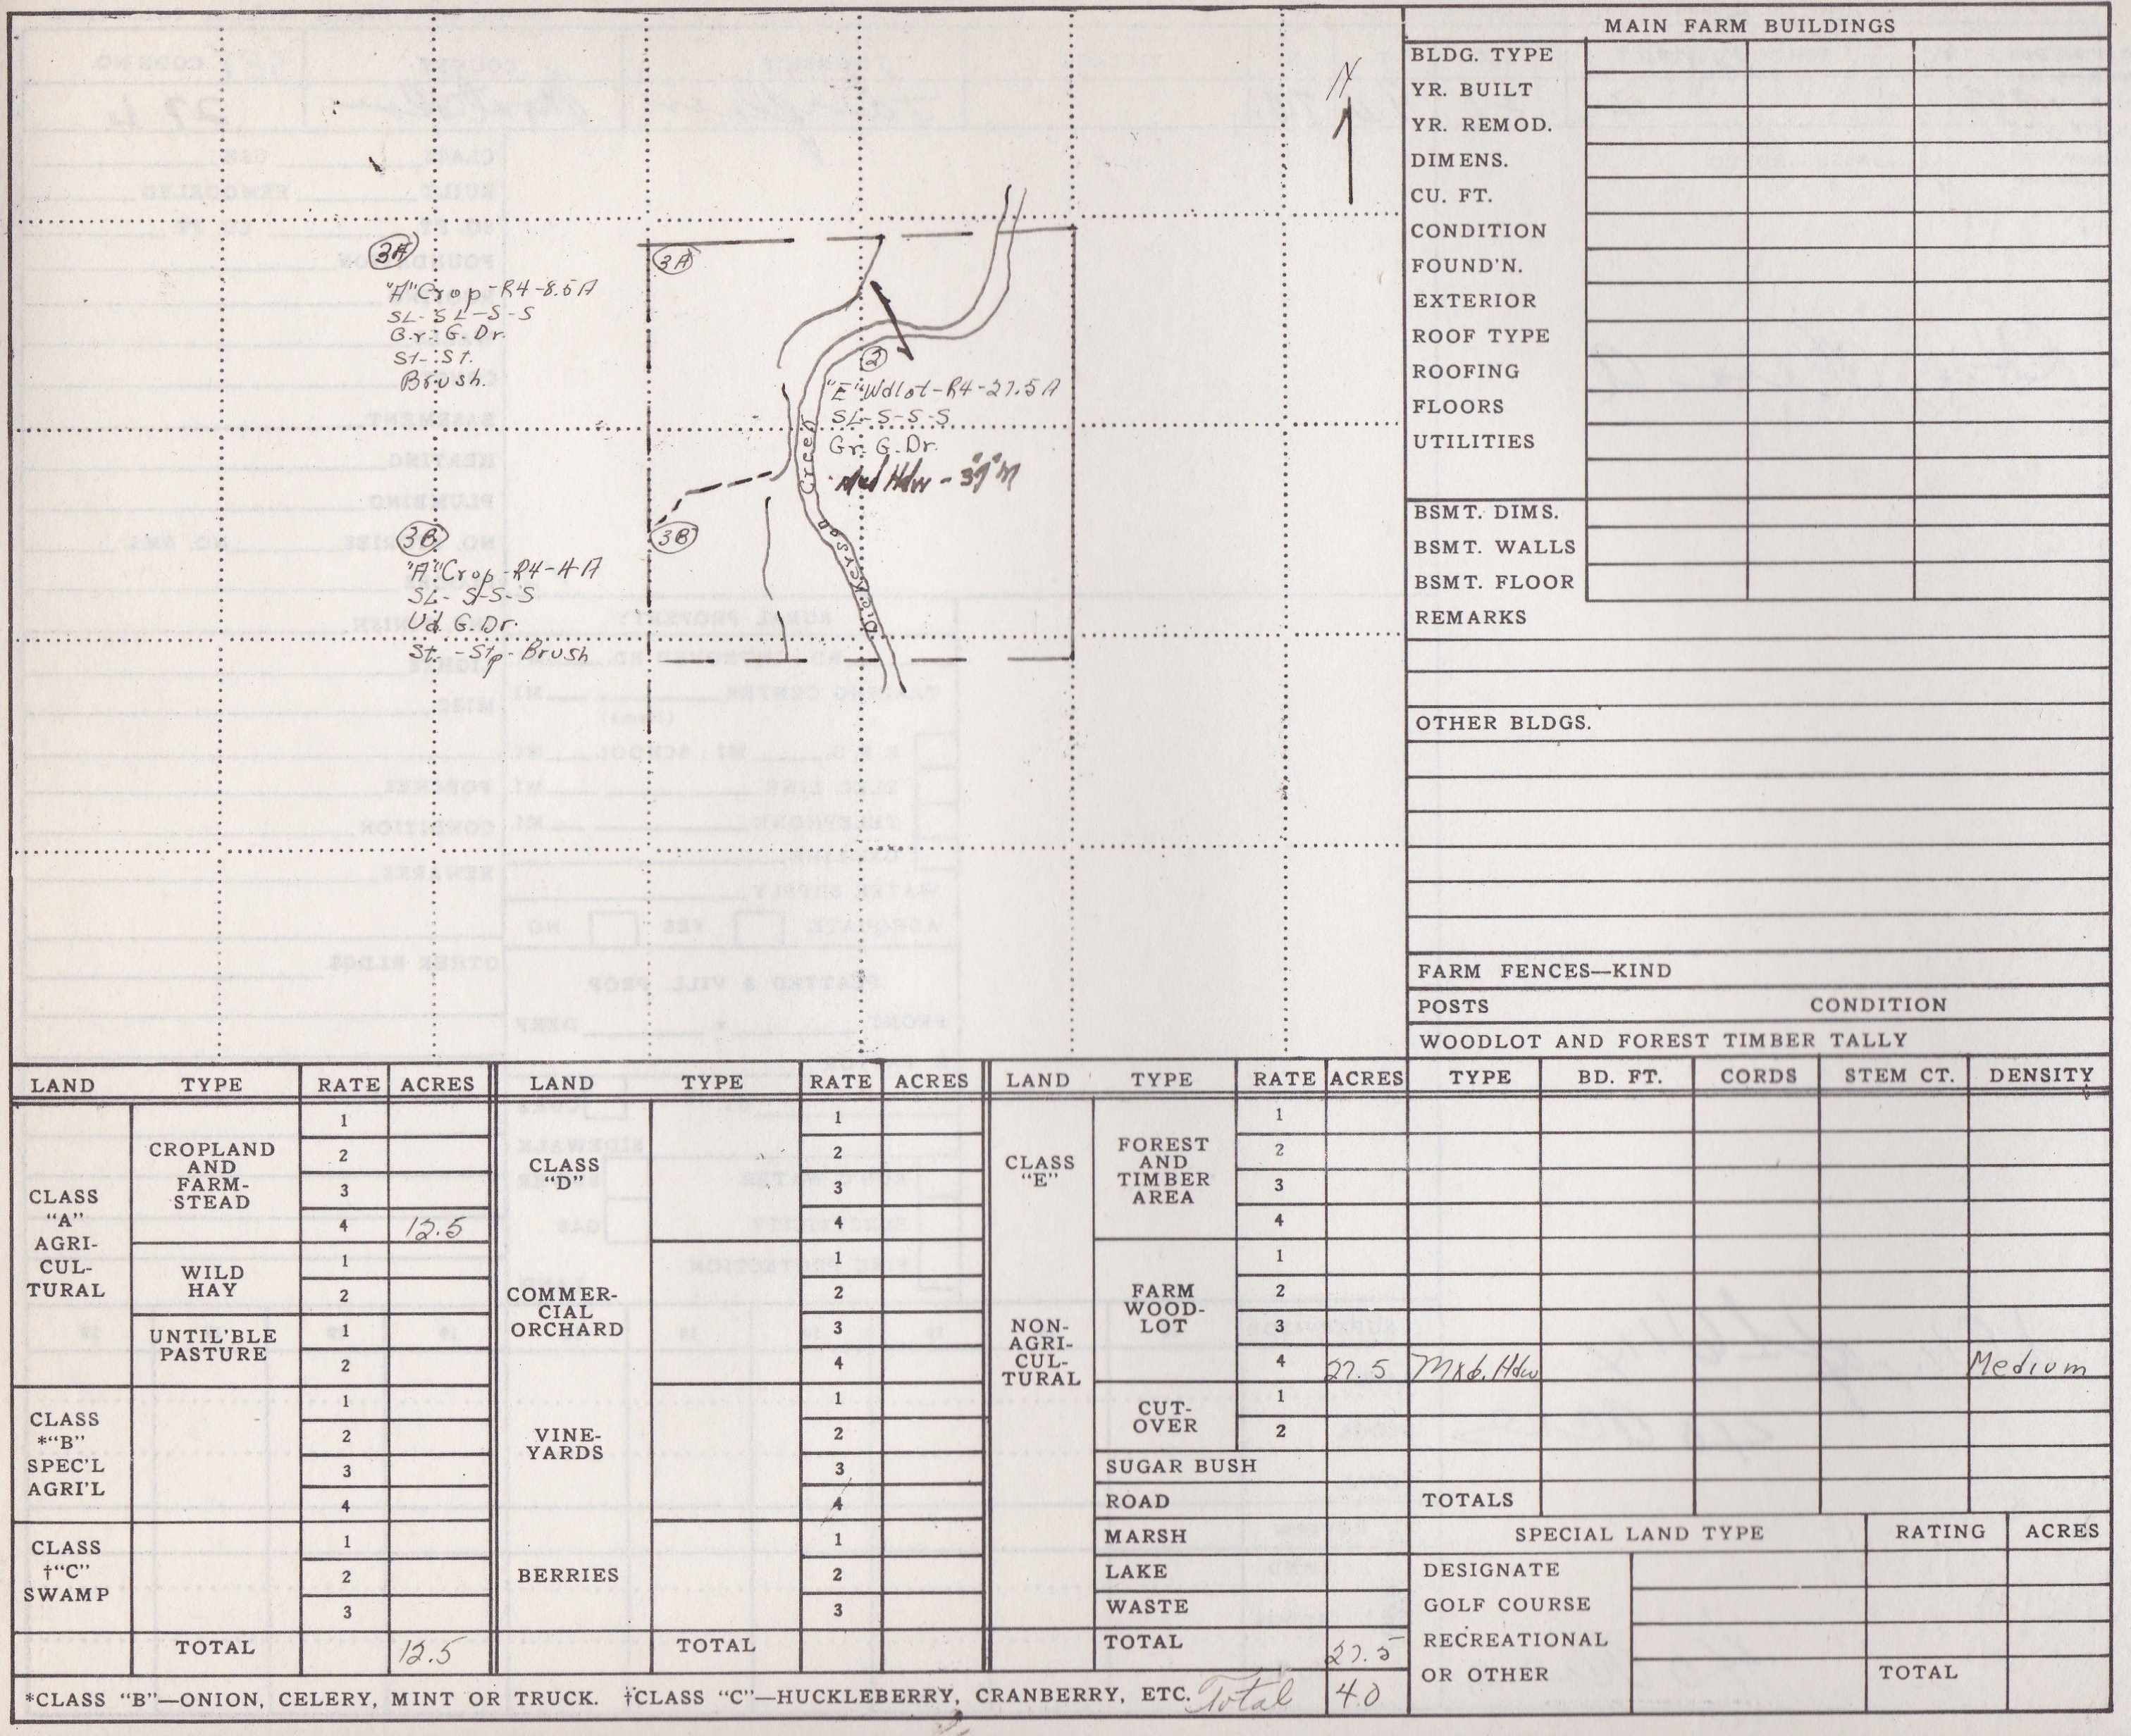 N
3A
"A" Crop-R4-8.5A
SL-SL-S-S
Br. G. Dr.
St-St.
Brush.
3A
2
"E" Wdlot-R4-27.5A
SL-S-S-S
Gr. G. Dr.
Hdw - 3"-9" M
Dickerson Creek
3B
"A" Crop-R4-4A
SL-S-S-S
Ud. G. Dr.
St.-Stp-Brush
3B
MAIN FARM BUILDINGS
BLDG. TYPE
YR. BUILT
YR. REMOD.
DIMENS.
CU. FT.
CONDITION
FOUND'N.
EXTERIOR
ROOF TYPE
ROOFING
FLOORS
UTILITIES
BSMT. DIMS.
BSMT. WALLS
BSMT. FLOOR
REMARKS
OTHER BLDGS.
FARM FENCES—KIND
POSTS CONDITION
WOODLOT AND FOREST TIMBER TALLY
LAND TYPE RATE ACRES
CLASS
"A"
AGRI-
CUL-
TURAL
CROPLAND
AND
FARM-
STEAD
1
2
3
4 12.5
WILD
HAY
1
2
UNTIL'BLE
PASTURE
1
2
CLASS
*"B"
SPEC'L
AGRI'L
1
2
3
4
CLASS
†"C"
SWAMP
1
2
3
TOTAL 12.5
LAND TYPE RATE ACRES
CLASS
"D"
1
2
3
4
COMMER-
CIAL
ORCHARD
1
2
3
4
VINE-
YARDS
1
2
3
4
BERRIES
1
2
3
TOTAL
LAND TYPE RATE ACRES
CLASS
"E"
NON-
AGRI-
CUL-
TURAL
FOREST
AND
TIMBER
AREA
1
2
3
4
FARM
WOOD-
LOT
1
2
3
4 27.5
CUT-
OVER
1
2
SUGAR BUSH
ROAD
MARSH
LAKE
WASTE
TOTAL 27.5
TYPE BD. FT. CORDS STEM CT. DENSITY
Mxd. Hdw Medium
TOTALS
SPECIAL LAND TYPE RATING ACRES
DESIGNATE
GOLF COURSE
RECREATIONAL
OR OTHER TOTAL
*CLASS "B"—ONION, CELERY, MINT OR TRUCK. †CLASS "C"—HUCKLEBERRY, CRANBERRY, ETC. Total 40